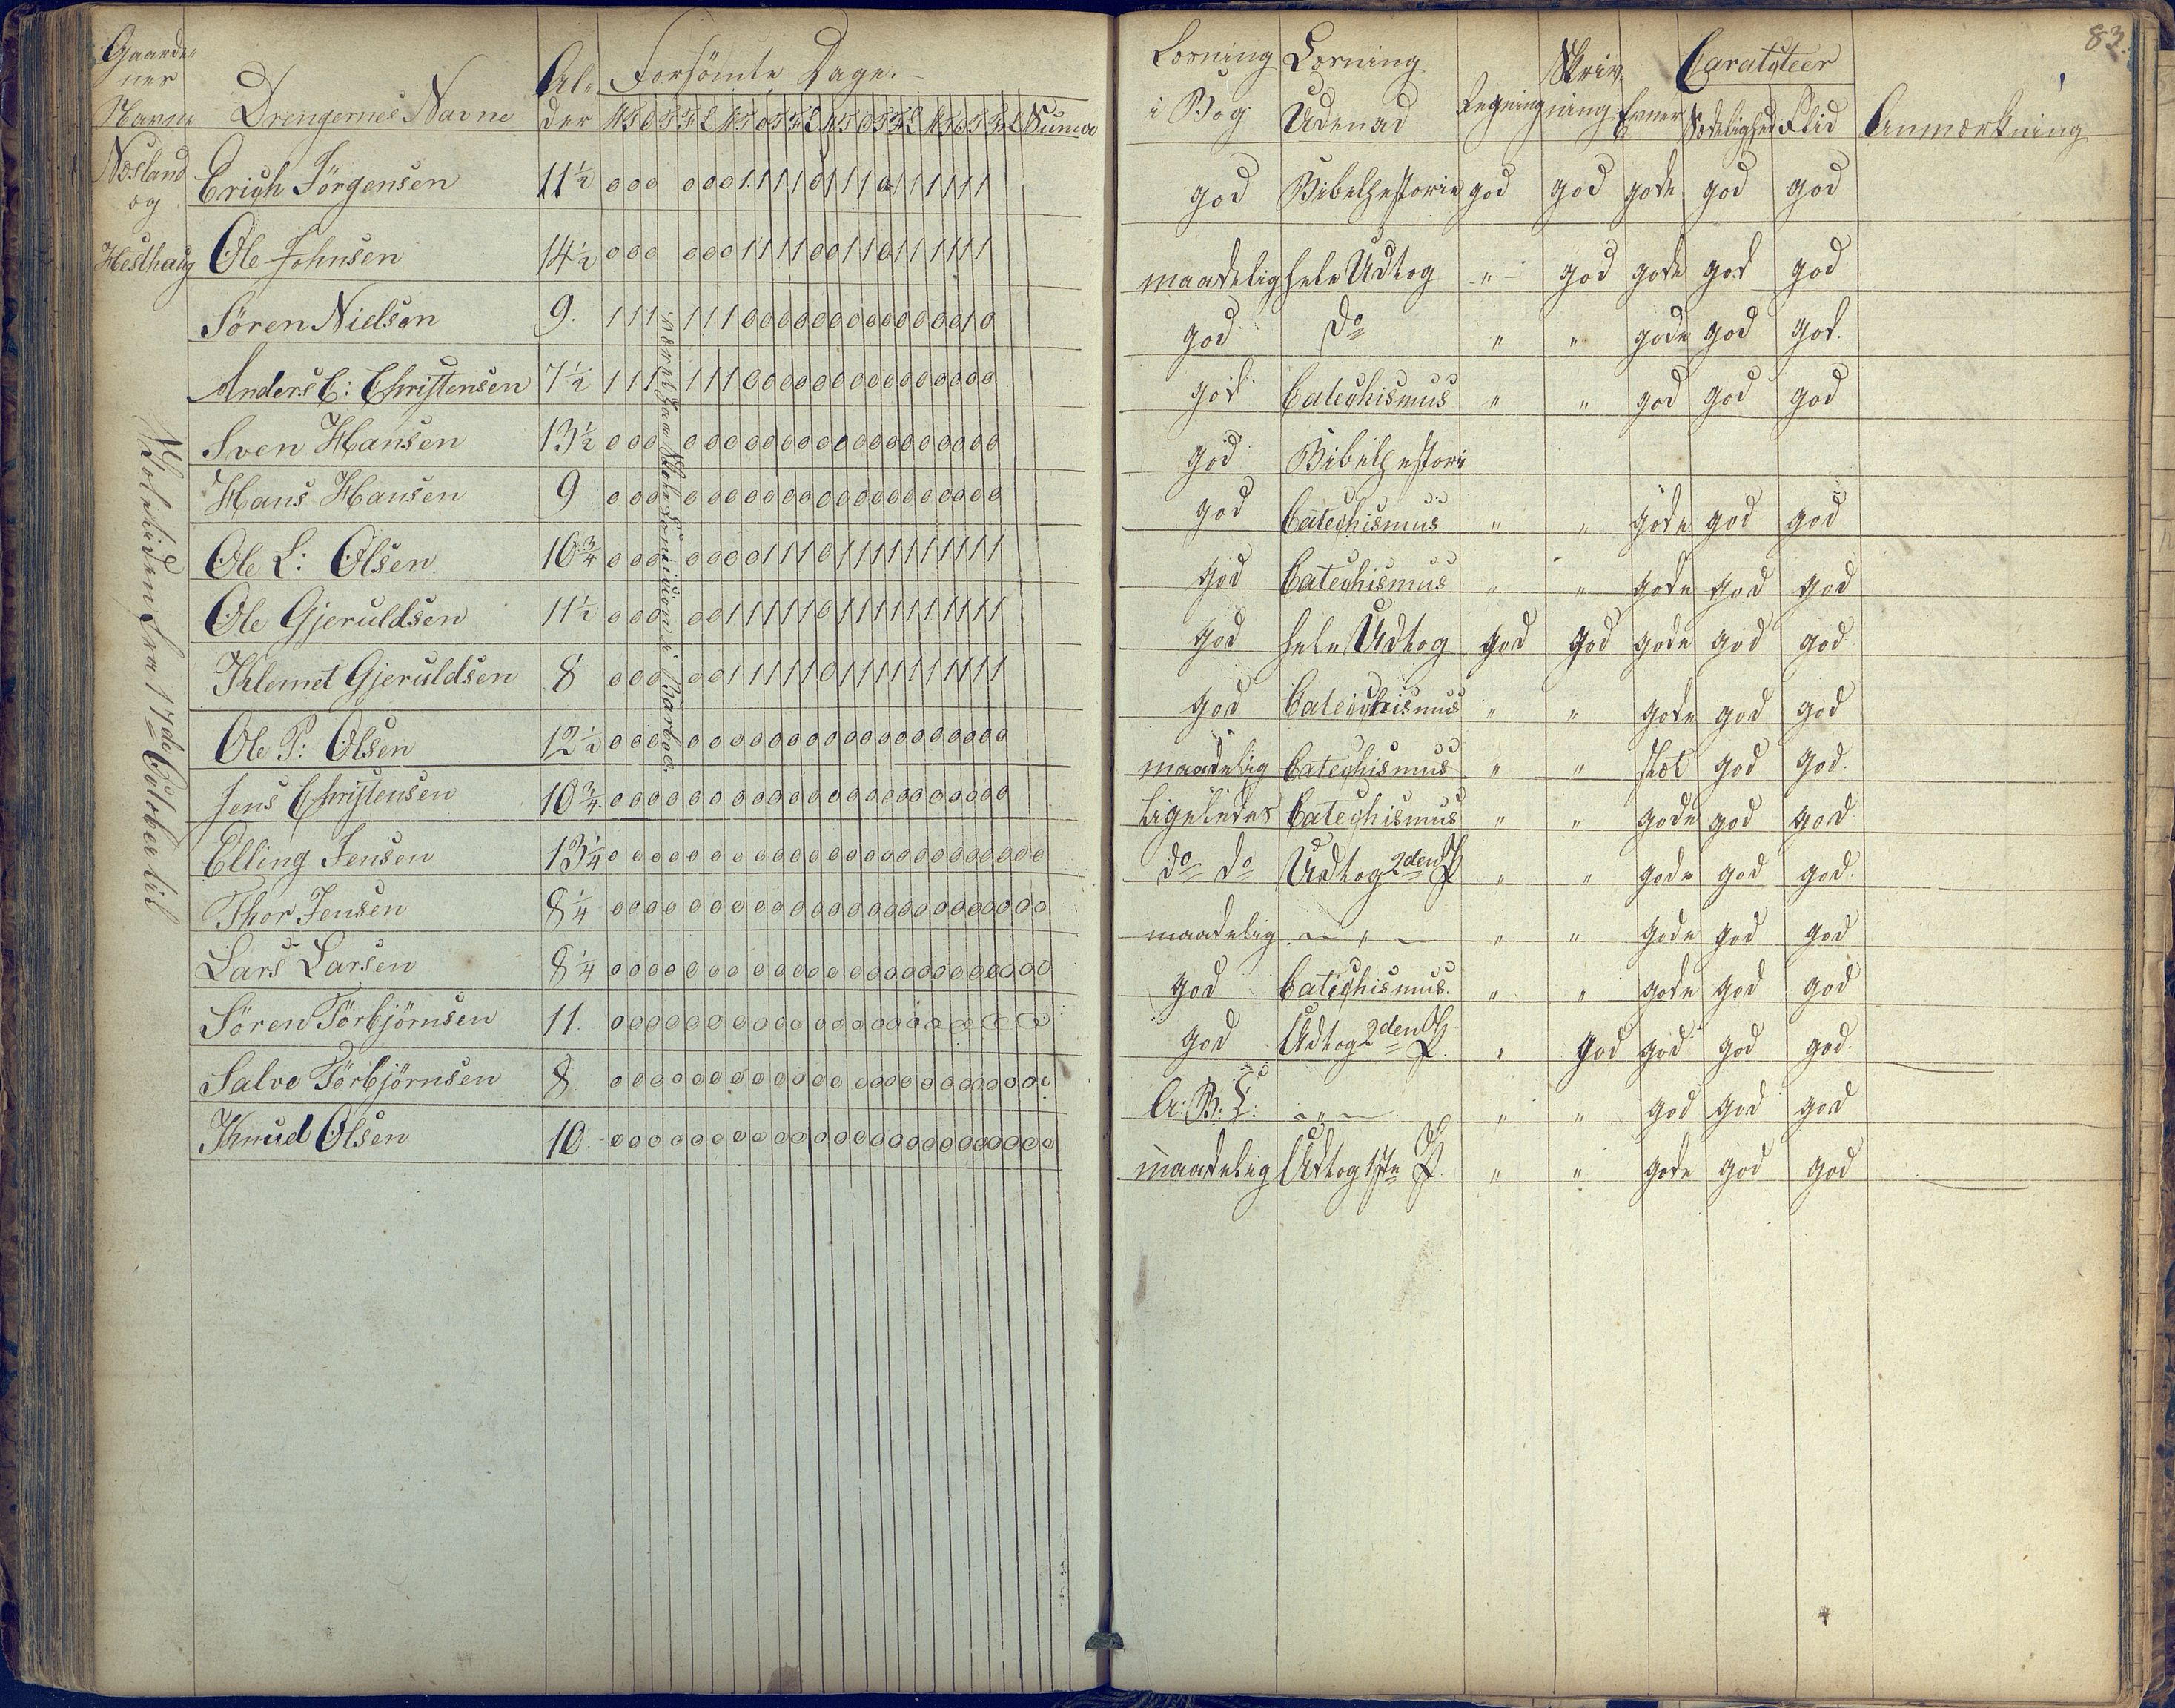 83.
Gaarde-
nes
Navne
Drengernes Navne
Al-
der
Forsömte Dage.
Suma
Læsning
i Bog
Læsning
Udenad
Regning
Skriv-
ning
Caracteer
Evner Sædelighed Flid
Anmærkning
Næsland
og
Hesthaug
Skoletiden fra 17de October til
været paa Skole Comission i Barboe.
Erich Jörgensen 11½ 0 0 0 0 0 0 1 1 1 1 0 1 1 1 0 1 1 1 1 1 1 god Bibelhestorie god god gode god god
Ole Johnsen 14½ 0 0 0 0 0 0 1 1 1 1 0 0 1 1 0 1 1 1 1 1 1 maadelig hele Udtog " god gode god god
Sören Nielsen 9. 1 1 1 1 1 1 0 0 0 0 0 0 0 0 0 0 0 0 0 1 0 god do " " gode god god.
Anders C: Christensen 7½ 1 1 1 1 1 1 0 0 0 0 0 0 0 0 0 0 0 0 0 0 0 god. Catechismus " " god god god
Sven Hansen 13½ 0 0 0 0 0 0 0 0 0 0 0 0 0 0 0 0 0 0 0 0 0 god Bibelhestori
Hans Hansen 9 0 0 0 0 0 0 0 0 0 0 0 0 0 0 0 0 0 0 0 0 0 god Catechismus " " gode god god
Ole L: Olsen. 10¾ 0 0 0 0 0 0 0 1 1 1 0 1 1 1 1 1 1 1 1 1 1 god Catechismus " " gode god god
Ole Gjeruldsen 11½ 0 0 0 0 0 1 1 1 1 1 0 1 1 1 1 1 1 1 1 1 1 god hele Udtog god god gode god god
Khlemet Gjeruldsen 8 0 0 0 0 0 1 1 1 1 1 0 1 1 1 1 1 1 1 1 1 1 god Catechismus " " gode god god
Ole P: Olsen 12½ 0 0 0 0 0 0 0 0 0 0 0 0 0 0 0 0 0 0 0 0 0 maadelig Catechismus " " slet god god.
Jens Christensen 10¾ 0 0 0 0 0 0 0 0 0 0 0 0 0 0 0 0 0 0 0 0 0 0 Ligeledes Catechismus " " gode god god
Elling Jensen 13¼ 0 0 0 0 0 0 0 0 0 0 0 0 0 0 0 0 0 0 0 0 0 0 0 0 do do Udtog 2den P " " gode god god.
Thor Jensen 8¼ 0 0 0 0 0 0 0 0 0 0 0 0 0 0 0 0 0 0 0 0 0 0 0 0 maadelig — " — " " gode god god
Lars Larsen 8¼ 0 0 0 0 0 0 0 0 0 0 0 0 0 0 0 0 0 0 0 0 0 0 0 0 god Catechismus. " " gode god god
Sören Törbjörnsen 11. 0 0 0 0 0 0 0 0 0 0 0 0 0 0 0 0 0 0 0 0 0 0 god Udtog 2den P. " god god god god.
Salve Törbjörnsen 8. 0 0 0 0 0 0 0 0 0 0 0 0 0 0 0 0 0 0 0 0 0 0 0 0 A: B: C: — " — " " god god god
Khnud Olsen 10. 0 0 0 0 0 0 0 0 0 0 0 0 0 0 0 0 0 0 0 0 0 0 0 0 maadelig Udtog 1ste P. " " gode god god